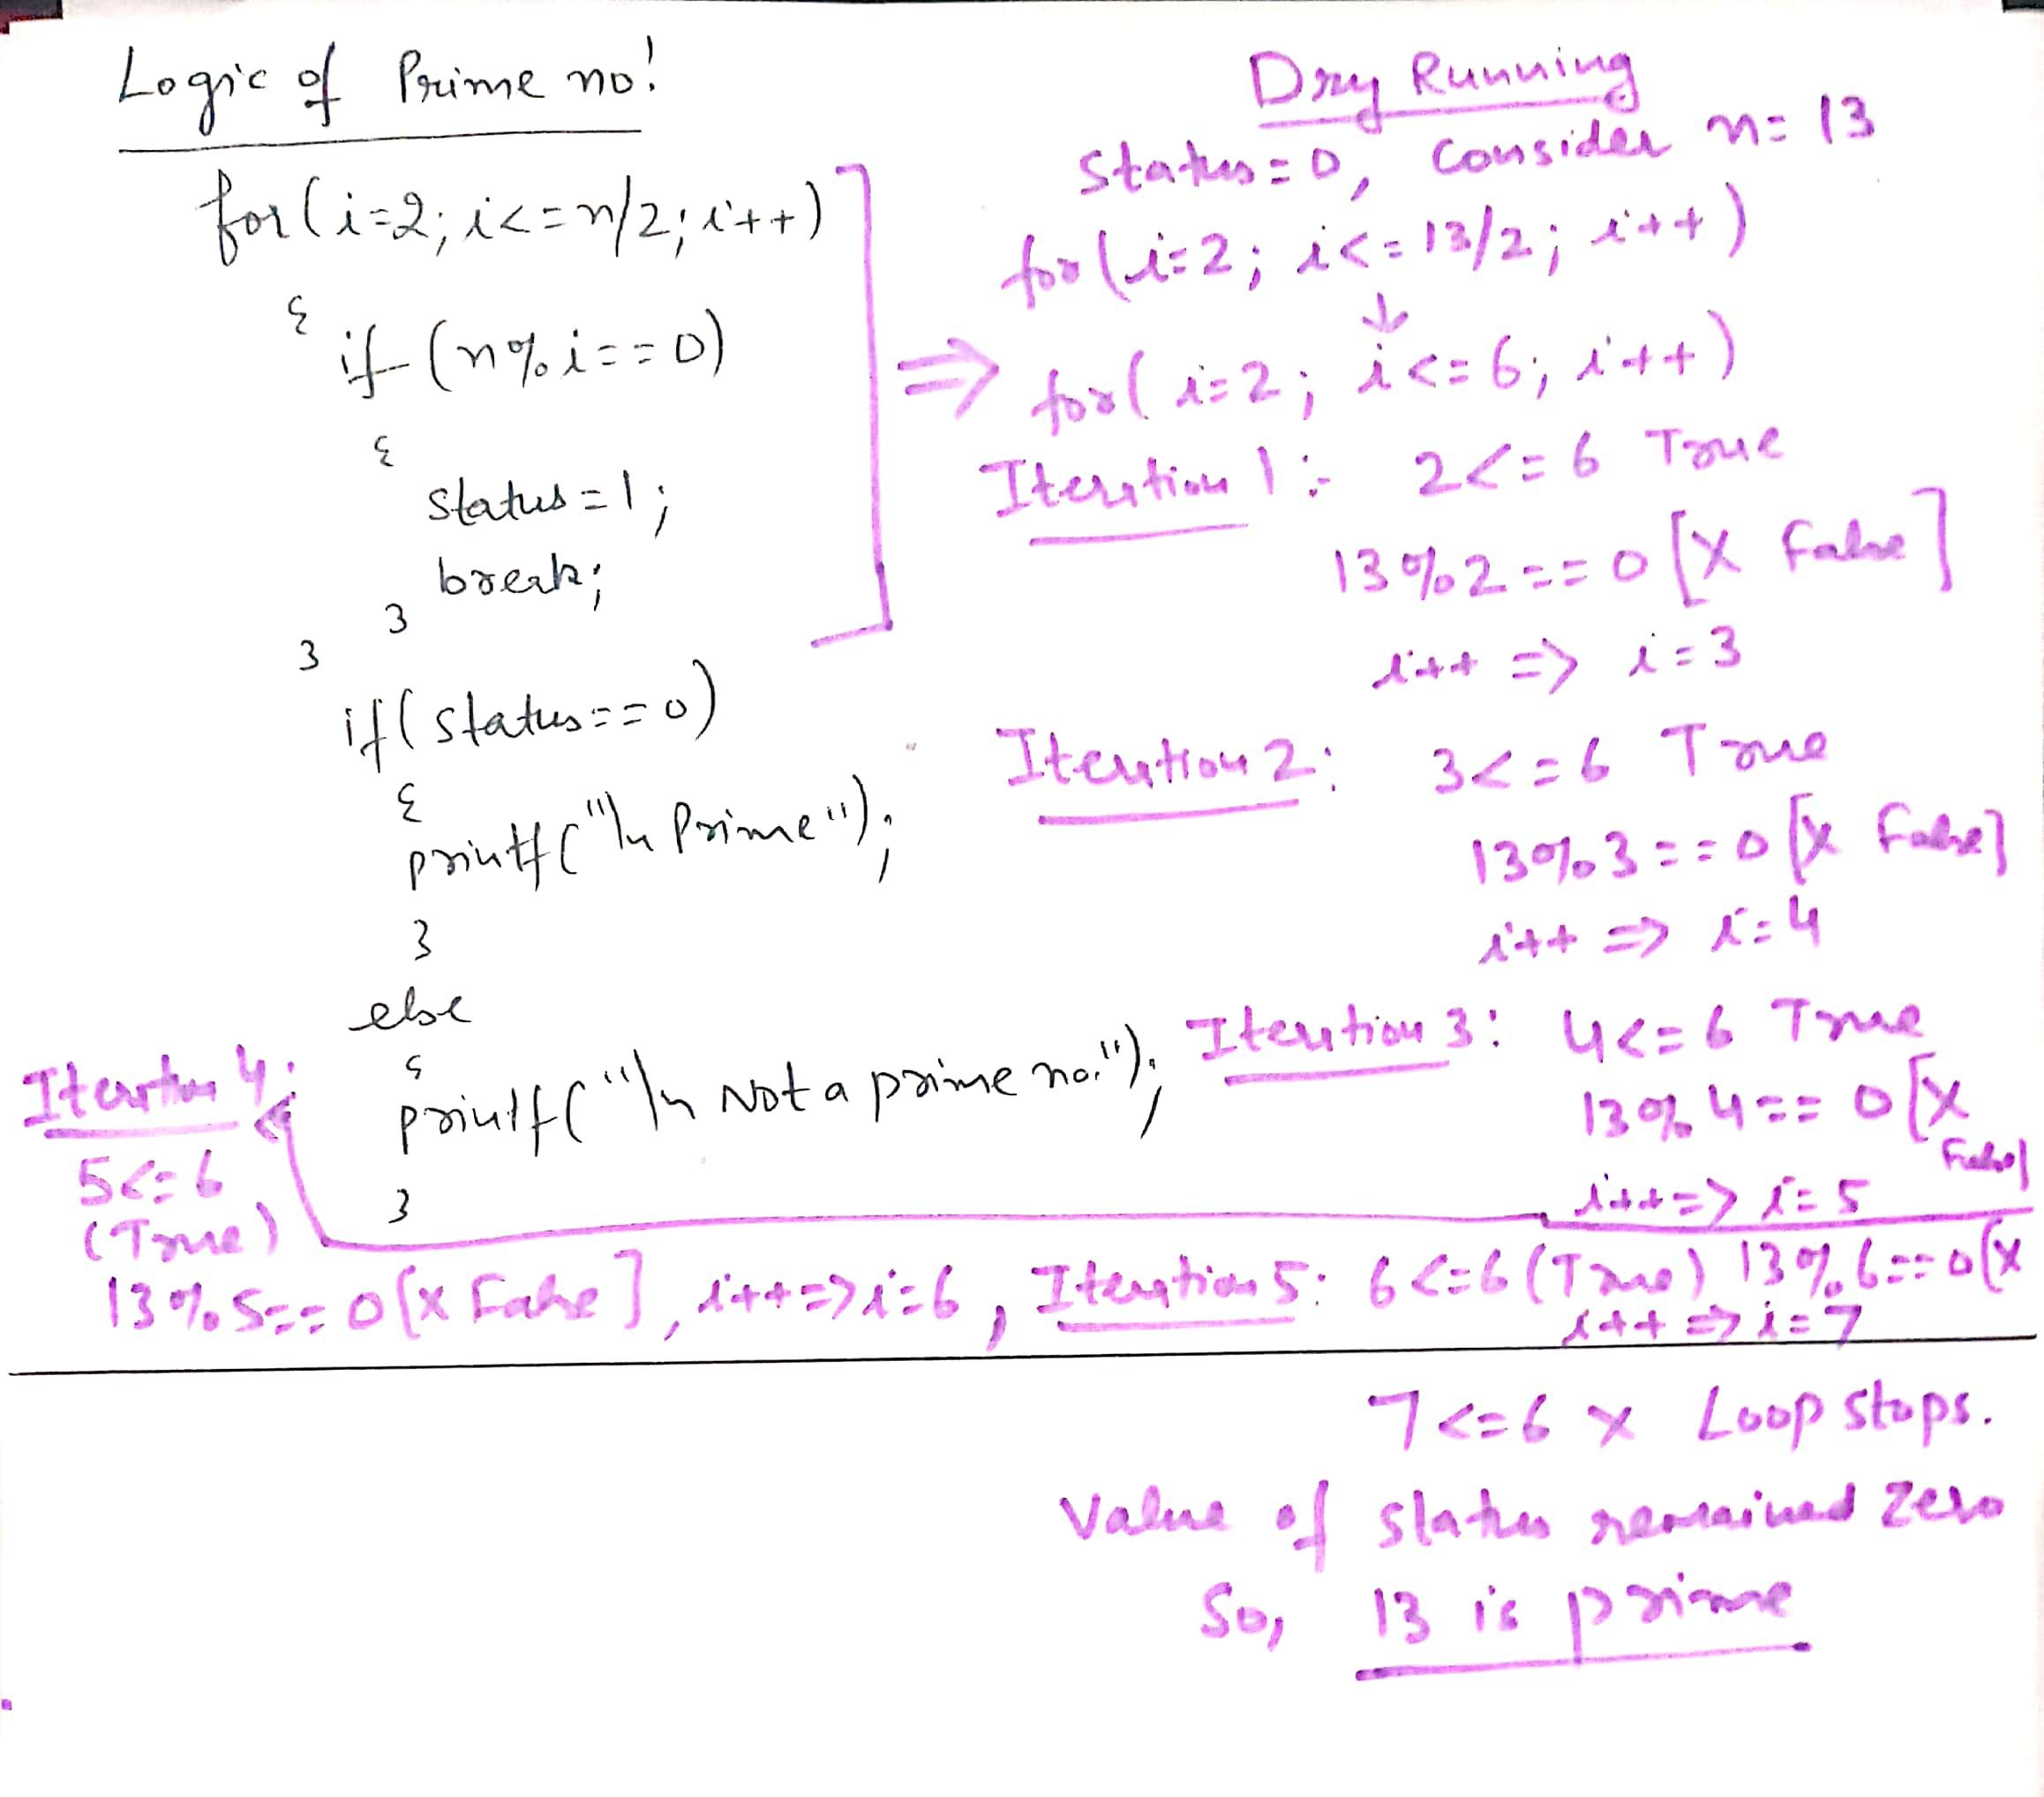 Logic of Prime no!
for(i=2; i<=n/2; i++)
{
if (n%i==0)
{
status=1;
break;
}
}
if(status==0)
{
printf("\n Prime");
}
else
{
printf("\n Not a prime no.");
}
Dry Running
Status=0, Consider n=13
for(i=2; i<=13/2; i++)
↓
⇒ for(i=2; i<=6; i++)
Iteration 1:- 2<=6 True
13%2==0 [X False]
i++ => i=3
Iteration 2: 3<=6 True
13%3==0 [X False]
i++ => i=4
Iteration 3: 4<=6 True
13%4==0 [X
False]
i++=> i=5
Iteration 4:
5<=6
(True)
13%5==0 [X False], i++=>i=6, Iteration 5: 6<=6 (True) 13%6==0 [X
i++ => i=7
7<=6 X Loop stops.
Value of status remained zero
So, 13 is prime